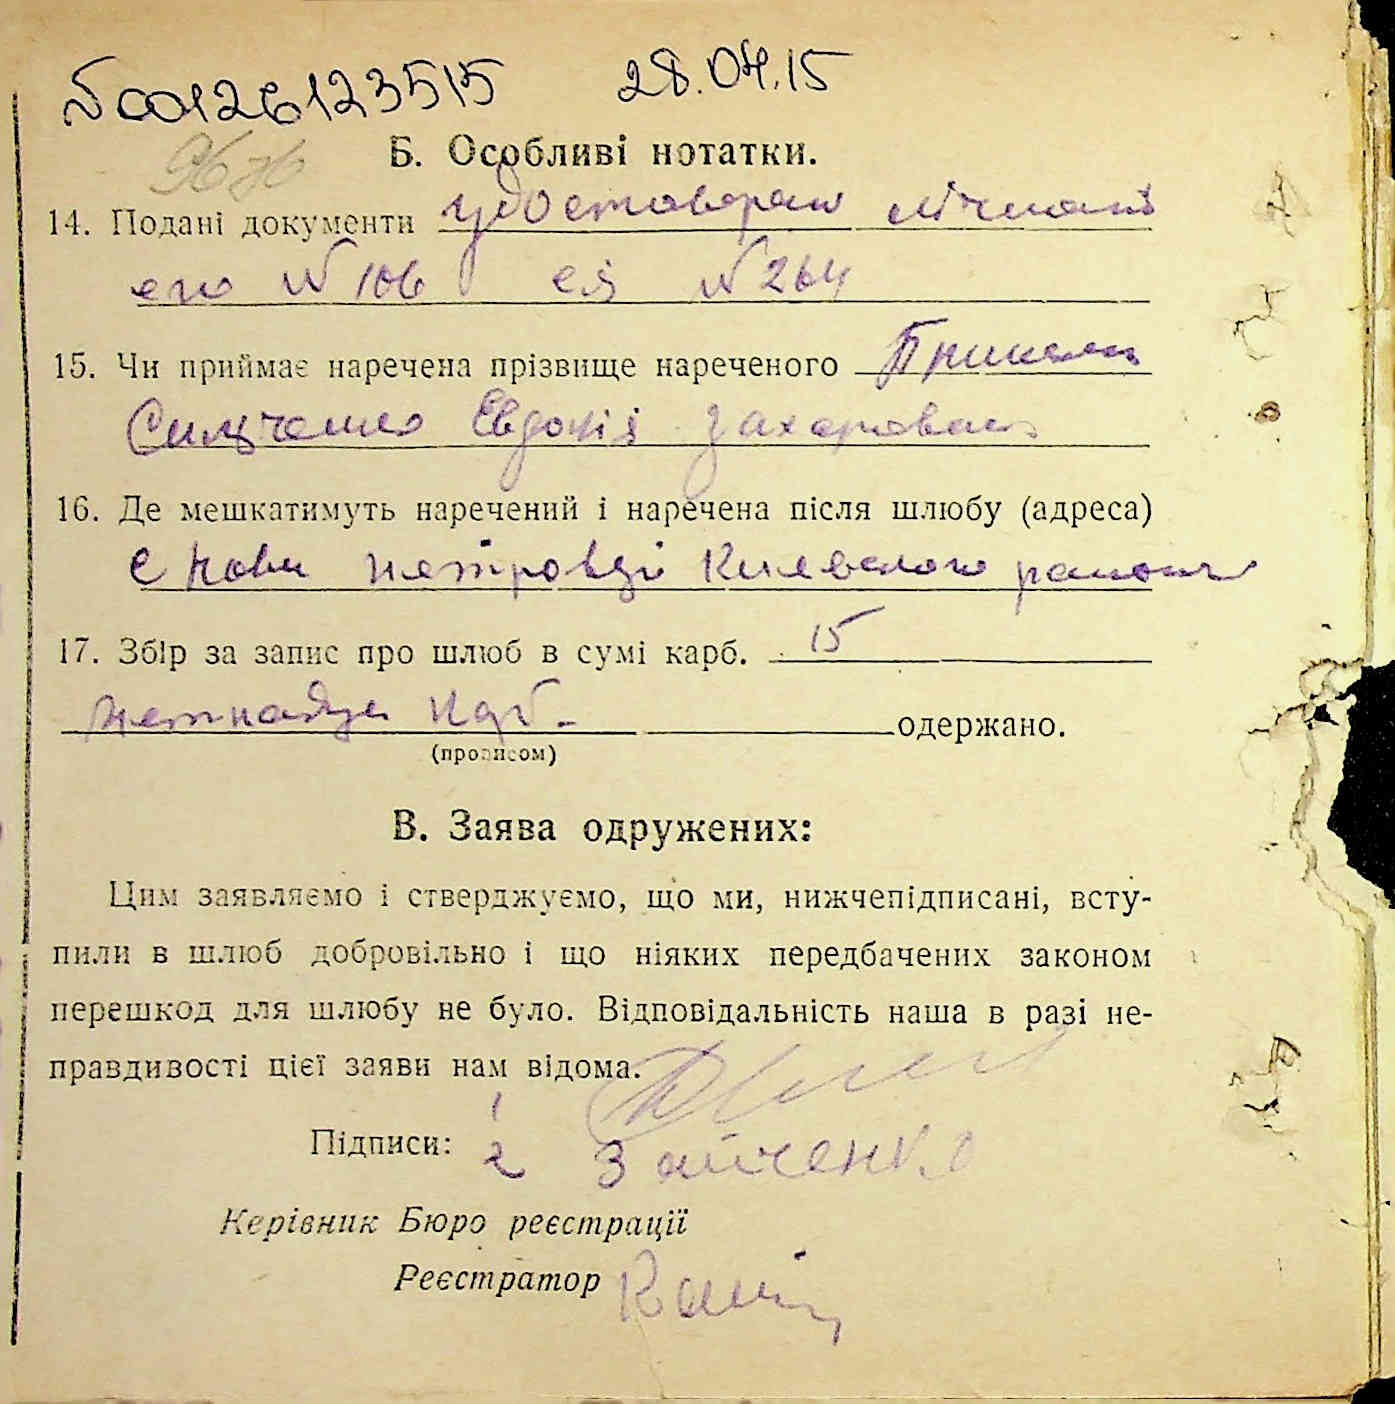 №00126123515 28.04.15
Б. Особливі нотатки.
14. Подані документи
его №106 ея №264
15. Чи приймає наречена прізвище нареченого
Євдокія Захаровна
16. Де мешкатимуть наречений і наречена після шлюбу (адреса)
с Нови Петровці Киевского району
17. Збір за запис про шлюб в сумі карб. 15
крб. одержано.
(прописом)
В. Заява одружених:
Цим заявляємо і стверджуємо, що ми, нижчепідписані, всту-
пили в шлюб добровільно і що ніяких передбачених законом
перешкод для шлюбу не було. Відповідальність наша в разі не-
правдивості цієї заяви нам відома.
1
Підписи: 2 Зайченко
Керівник Бюро реєстрації
Реєстратор